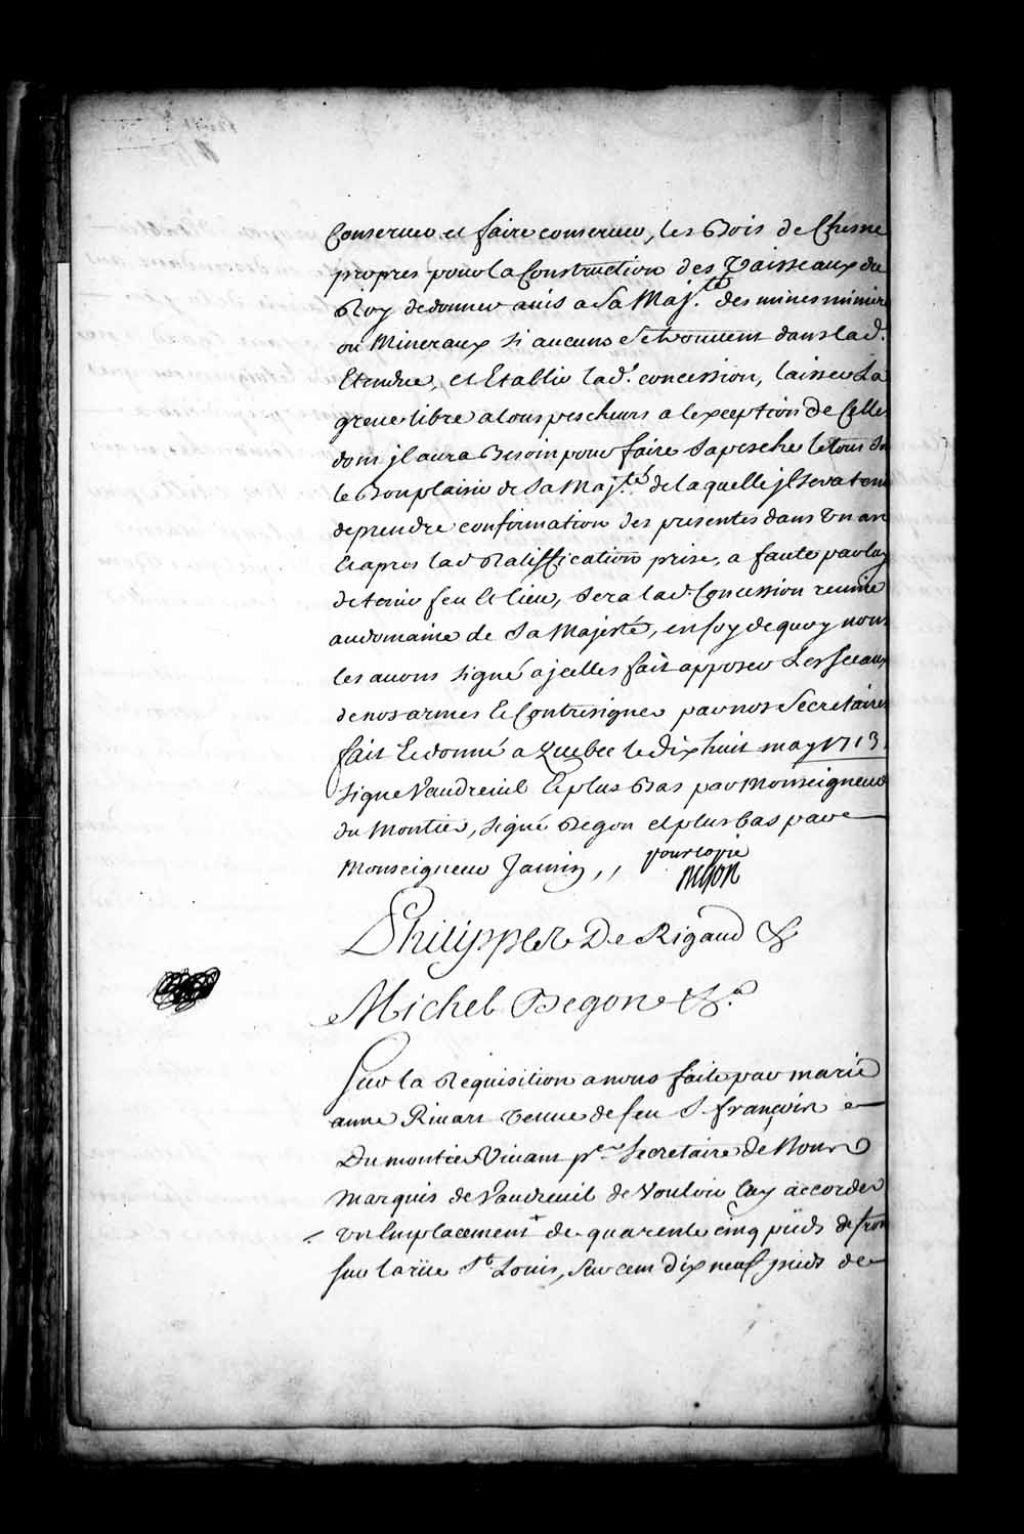 Conserver et faire conserver, les Bois de Chesne
propres pour la Construction des Vaisseaux du
Roy de donner avis a Sa Maj.té des mines miniere
ou Mineraux si aucuns se trouvent dans lad.
Etendue, et Etablir lad.e concession, laisser La
greve libre a tous pescheurs a lexception de Celle
dont jl aura Besoin pour faire sa pesche le tous
le Bon plaisir de Sa Maj.té de laquelle jl sera tenu
de prendre confirmation des presentes dans Un an
Et apres lad Ratiffication prise, a faute par luy
de tenir feu et lieu, sera lad Concession reunie
au domaine de Sa Majesté, en foy de quoy nous
les avons signé a jcelles fait apposer Les sceaux
de nos armes Et Contresigner par nos Secretaires
fait Et donné a Quebec le dix huit may 1713.
signe Vaudreuil Et plus Bas par Monseigneur
Du Montier, signé Begon et plus bas par
Monseigneur Jamin,,
pour copie
Begon
Philippe De Rigaud &
Michel Begon &.a
Sur la Requisition a nous faite par marie
anne Rivart veuve de feu S. françois
Du montier vivant p.er Secretaire de Nous
Marquis de Vaudreuil de Vouloir luy accorder
un Emplacement + de quarente cinq pieds de front
sur la rüe St Louis, sur cent dix neuf pieds de